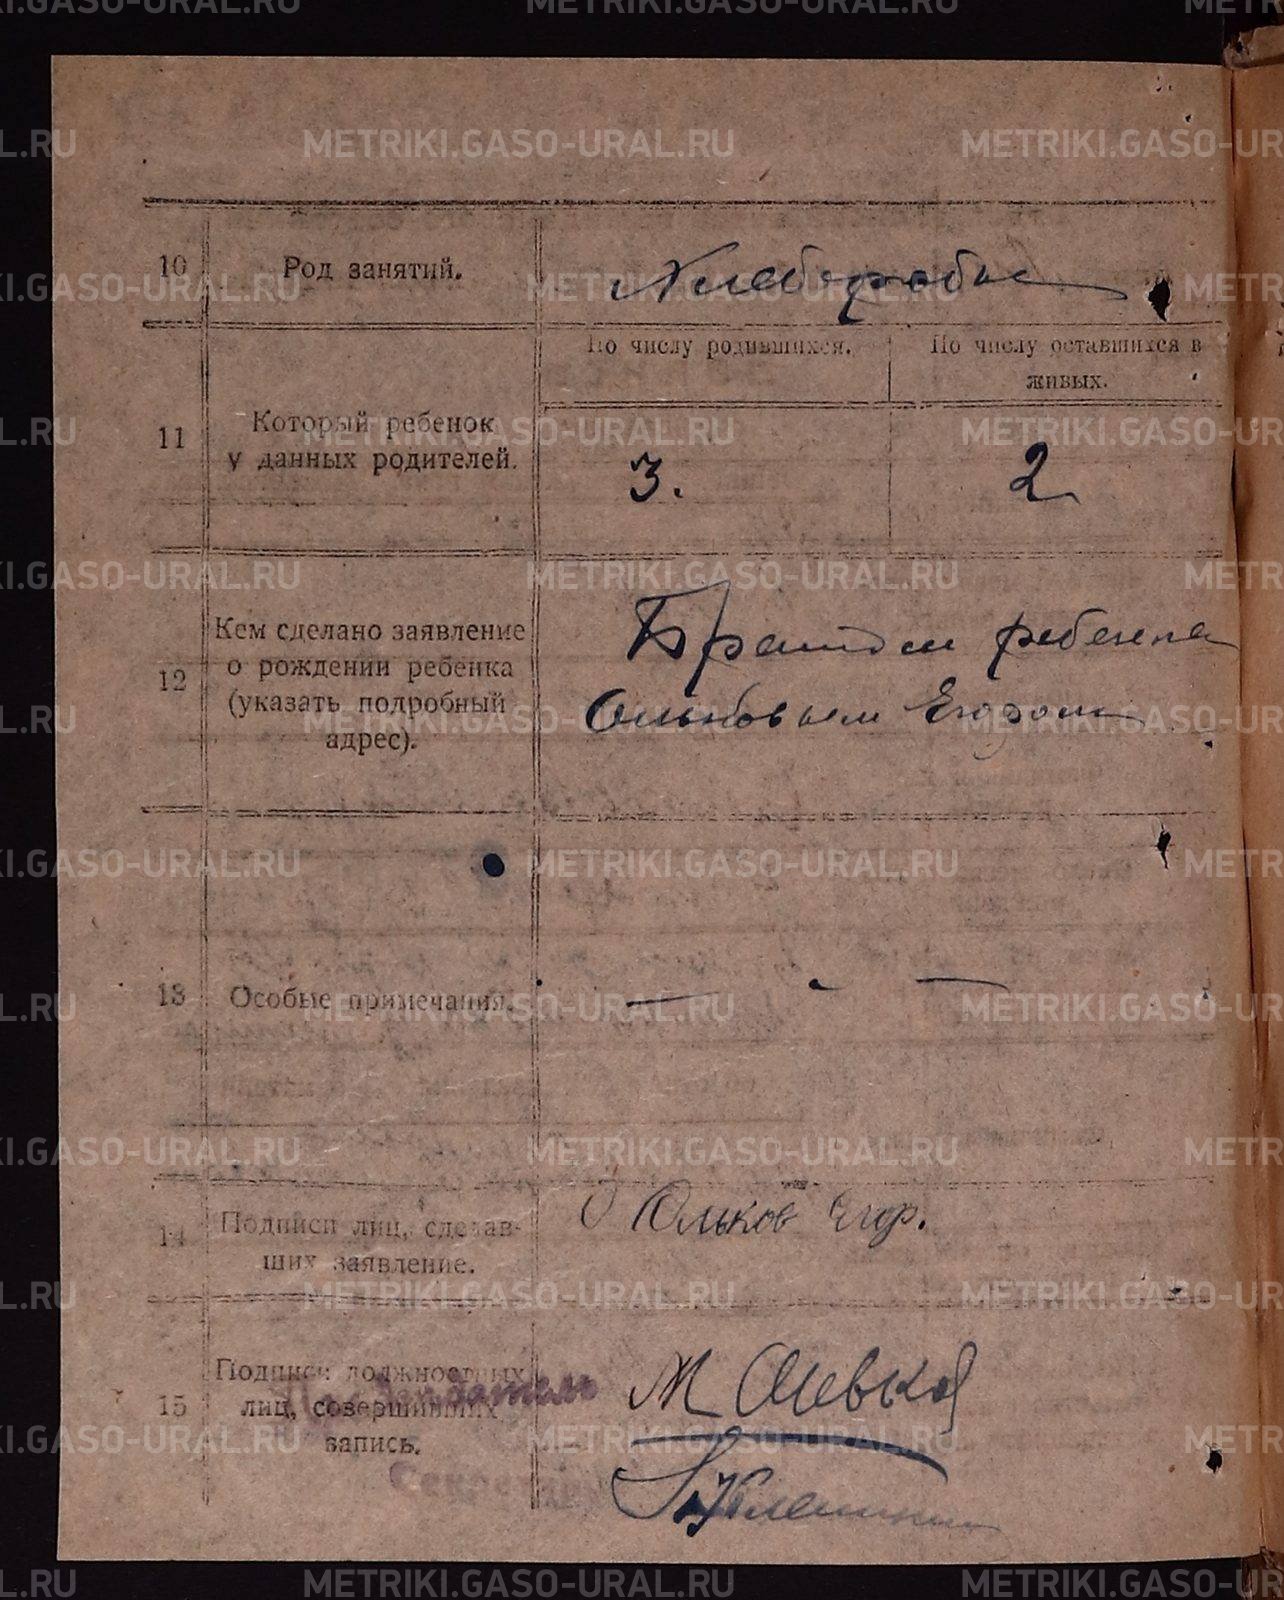 METRIKI.GASO-URAL.RU
10
Род занятий.
Хлеборобы
11
Который ребенок
у данных родителей.
По числу родившихся.
По числу оставшихся в
живых.
3.
2
12
Кем сделано заявление
о рождении ребенка
(указать подробный
адрес).
Братом ребенка
Ольковым Егором
13
Особые примечания.
— - —
14
Подписи лиц, сделав-
ших заявление.
Ольков Егор.
15
Подписи должностных
лиц, совершивших
запись.
Председатель
Секретарь
М